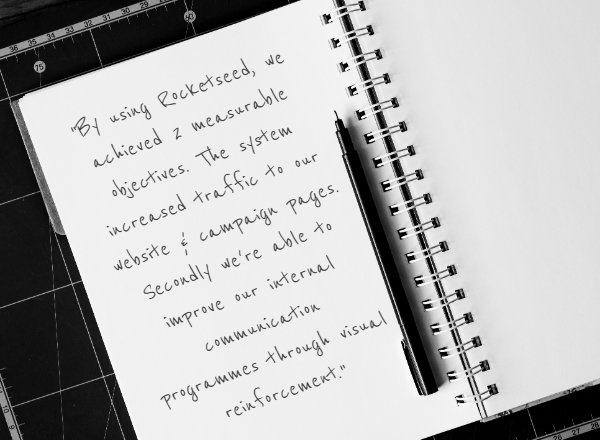 "By using Rocketseed, we
achieved 2 measurable
objectives. The system
increased traffic to our
website & campaign pages.
Secondly we're able to
improve our internal
communication
programmes through visual
reinforcement."